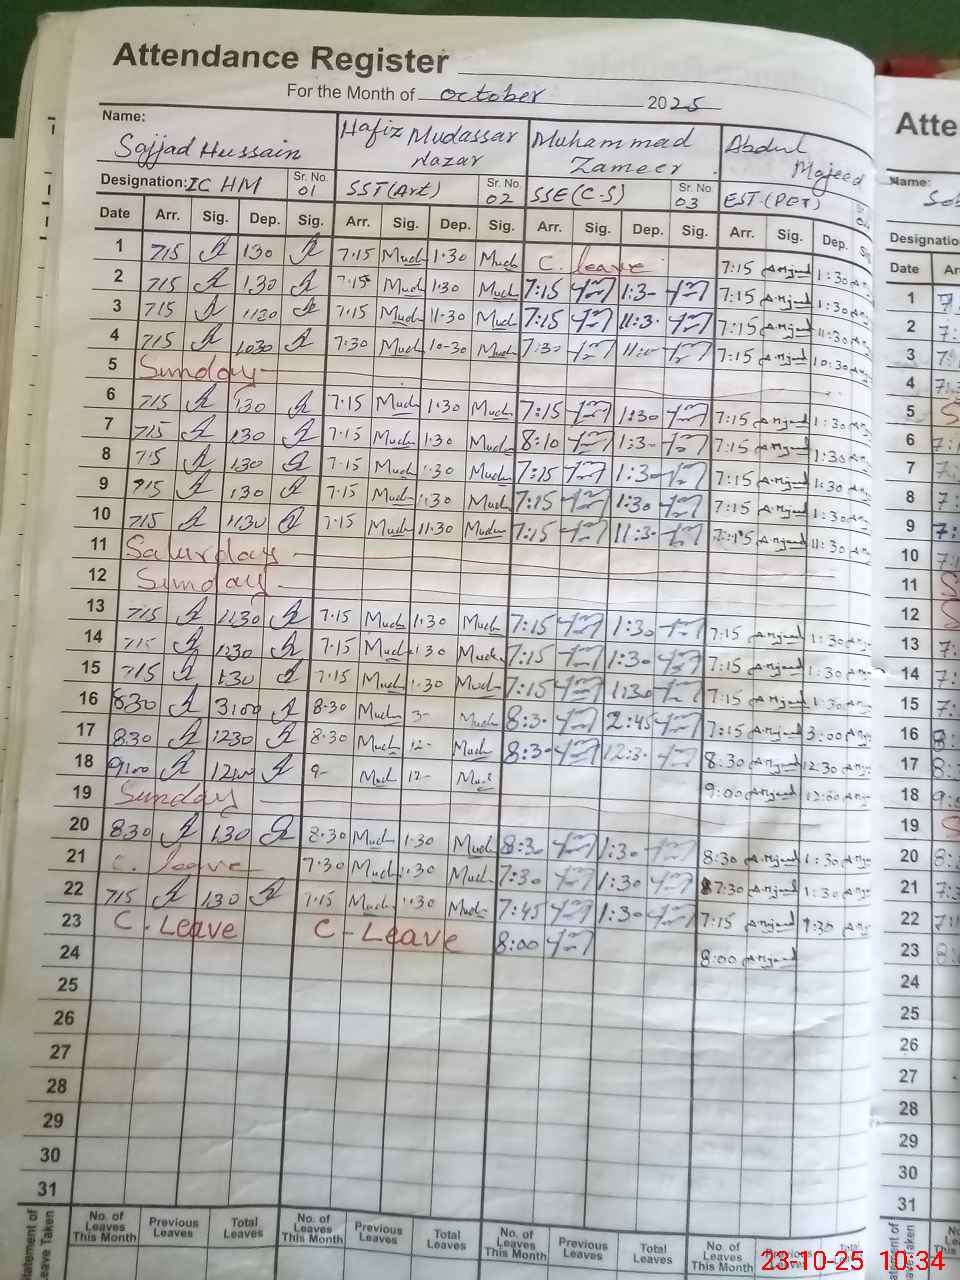 Attendance Register
For the Month of October 2025
Name:
Sajjad Hussain Hafiz Mudassar Nazar Muhammad Zameer Abdul Majeed
Designation: IC HM Sr. No. 01 SST (Art) Sr. No. 02 SSE (C-S) Sr. No. 03 EST (PET)
Date Arr. Sig. Dep. Sig. Arr. Sig. Dep. Sig. Arr. Sig. Dep. Sig. Arr. Sig. Dep.
1 715 130 7.15 Mud 1.30 Mud C. leave 7:15 Amjad 1:30
2 715 130 7.15 Mud 1.30 Mud 7:15 1:3- 7:15 Amjad 1:30
3 715 1130 7.15 Mud 11.30 Mud 7:15 11:3- 7:15 Amjad 11:30
4 715 1030 7.30 Mud 10-30 Mud 7:30 7:15 Amjad 10:30
5 Sunday
6 715 130 7.15 Mud 1.30 Mud 7:15 1:30 7:15 Amjad 1:30
7 715 130 7.15 Mud 1.30 Mud 8:10 1:3- 7:15 Amjad 1:30
8 715 130 7.15 Mud 1.30 Mud 7:15 1:3- 7:15 Amjad 1:30
9 715 130 7.15 Mud 1.30 Mud 7:15 1:30 7:15 Amjad 1:30
10 715 1130 7.15 Mud 11.30 Mud 7:15 11:3- 7:15 Amjad 11:30
11 Saturday
12 Sunday
13 715 1130 7.15 Mud 1.30 Mud 7:15 1:30 7:15 Amjad 1:30
14 715 7.15 Mud 1.30 Mud 7:15 1:30 7:15 Amjad 1:30
15 715 130 7.15 Mud 1.30 Mud 7:15 1:30 7:15 Amjad 1:30
16 830 3100 8.30 Mud 3- Mud 8:3- 2:45 7:15 Amjad 3:00
17 830 1230 8.30 Mud 12- Mud 8:3- 12:3- 8:30 Amjad 12:30
18 9100 9- Mud 12- Mud 9:00 Amjad
19 Sunday
20 830 130 8.30 Mud 1.30 Mud 8:3- 1:30 8:30 Amjad 1:30
21 C. leave 7.30 Mud 1.30 Mud 7:30 1:30 7:30 Amjad 1:30
22 715 130 7.15 Mud 1.30 Mud 7:45 1:30 7:15 Amjad
23 C. Leave C-Leave 8:00 8:00 Amjad
24
25
26
27
28
29
30
31
No. of Leaves This Month Previous Leaves Total Leaves No. of Leaves This Month Previous Leaves Total Leaves No. of Leaves This Month Previous Leaves Total Leaves No. of Leaves
23-10-25 10:34
Name:
Date
1
2
3
4
5
6
7
8
9
10
11
12
13
14
15
16
17
18
19
20
21
22
23
24
25
26
27
28
29
30
31